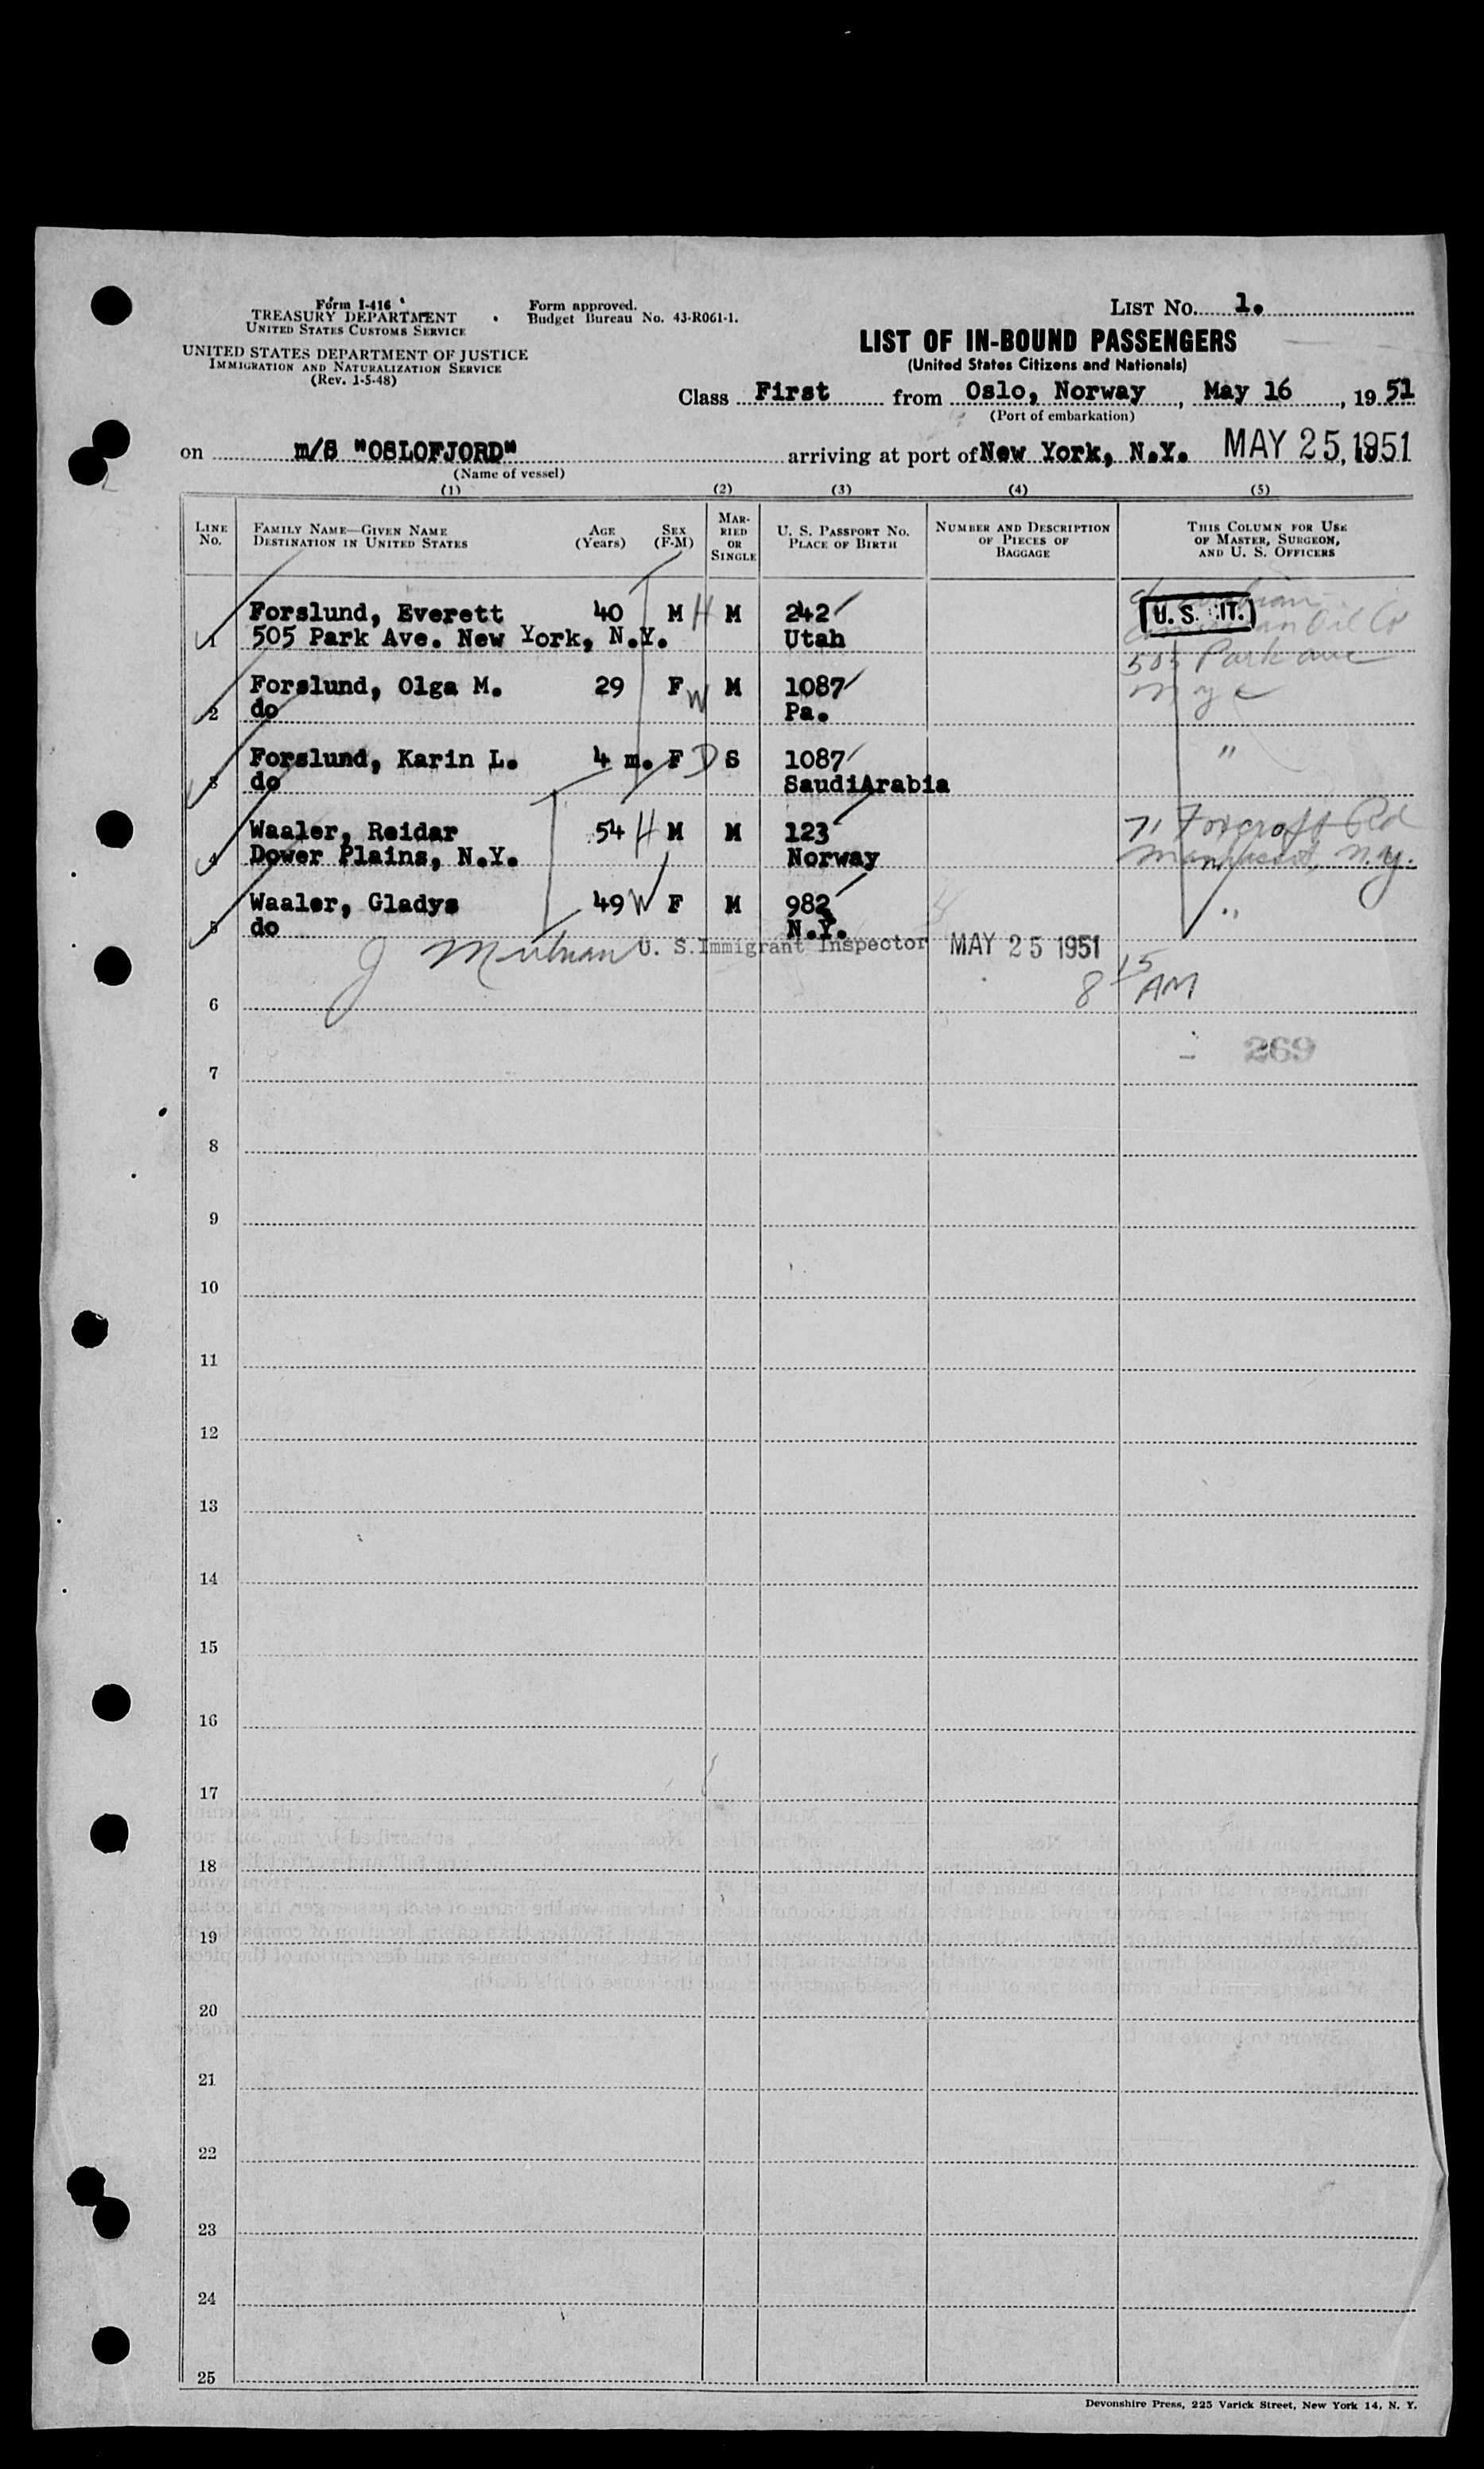 Form I-416
TREASURY DEPARTMENT
UNITED STATES CUSTOMS SERVICE
UNITED STATES DEPARTMENT OF JUSTICE
IMMIGRATION AND NATURALIZATION SERVICE
(Rev. 1-5-48)
Form approved.
Budget Bureau No. 43-R061-1.
LIST No. 1.
LIST OF IN-BOUND PASSENGERS
(United States Citizens and Nationals)
Class First from Oslo, Norway, May 16, 1951
(Port of embarkation)
on m/S "OSLOFJORD" arriving at port of New York, N.Y. MAY 25, 1951
(Name of vessel)
(1) (2) (3) (4) (5)
LINE No. FAMILY NAME—GIVEN NAME DESTINATION IN UNITED STATES AGE (Years) SEX (F-M) MARRIED OR SINGLE U. S. PASSPORT No. PLACE OF BIRTH NUMBER AND DESCRIPTION OF PIECES OF BAGGAGE THIS COLUMN FOR USE OF MASTER, SURGEON, AND U. S. OFFICERS
Forslund, Everett 40 M H M 242 U. S. CIT.
1 505 Park Ave. New York, N.Y. Utah Oil Co
505 Park ave
Forslund, Olga M. 29 F W M 1087 N Y C
2 do Pa.
Forslund, Karin L. 4 m. F D S 1087 "
3 do SaudiArabia
Waaler, Reidar 54 H M M 123 71 Foxcroft Rd
4 Dower Plains, N.Y. Norway Manhasset, N.Y.
Waaler, Gladys 49 W F M 982 "
5 do N.Y.
J U. S. Immigrant Inspector MAY 25 1951
8 15 AM
6
269
7
8
9
10
11
12
13
14
15
16
17
18
19
20
21
22
23
24
25
Devonshire Press, 225 Varick Street, New York 14, N. Y.